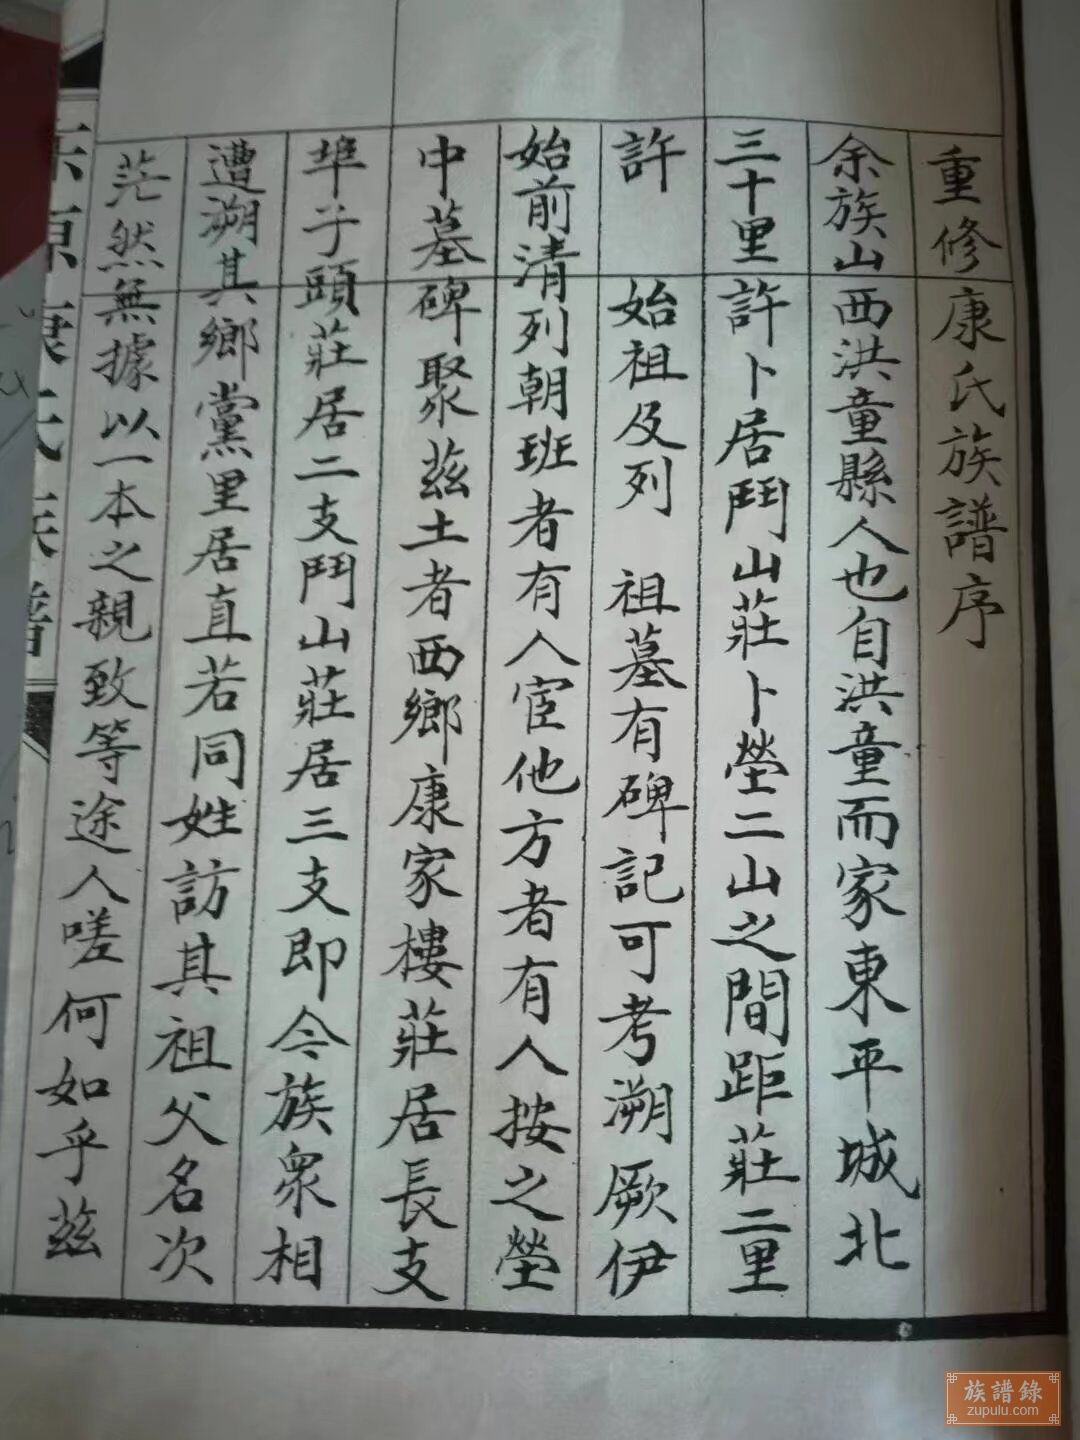 重修康氏族譜序
余族山西洪童縣人也自洪童而家東平城北
三十里許卜居鬥山莊卜塋二山之間距莊二里
許 始祖及列 祖墓有碑記可考溯厥伊
始前清列朝班者有人宦他方者有人按之塋
中墓碑聚茲土者西鄉康家樓莊居長支
埠子頭莊居二支鬥山莊居三支即今族眾相
遭溯其鄉黨里居直若同姓訪其祖父名次
茫然無據以一本之親致等途人嗟何如乎茲
康氏族譜
族譜錄
zupulu.com